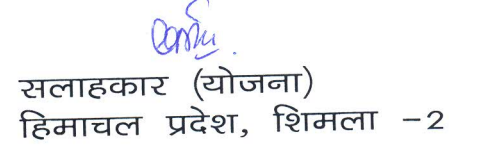 सलाहकार (योजना)
हिमाचल प्रदेश, शिमला -2